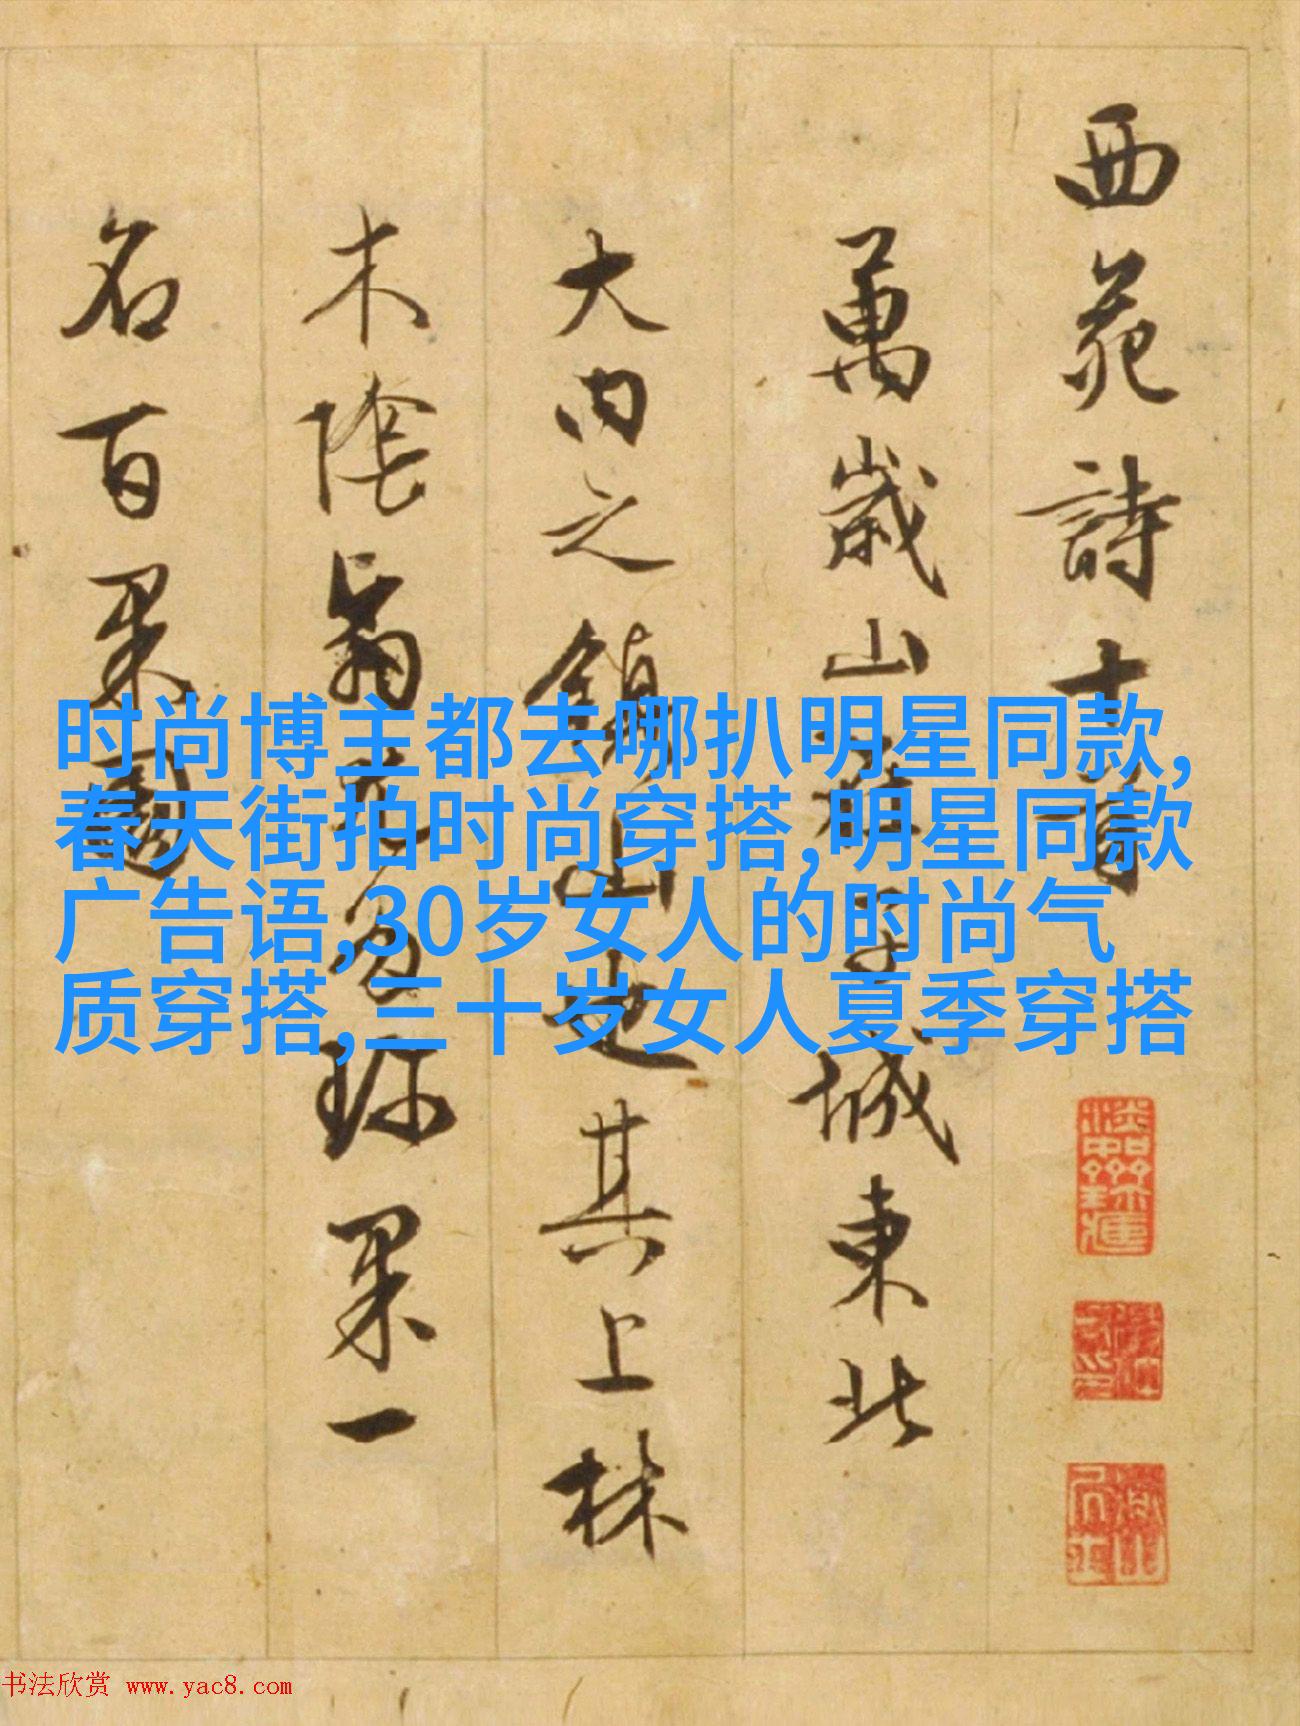 西苑詩十首
萬歲山在子城東北
大內之鎮山也其上林
木陰翳尤多珍果一
名百果園
时尚博主都去哪扒明星同款,
春天街拍时尚穿搭,明星同款
广告语,30岁女人的时尚气
质穿搭,三十岁女人夏季穿搭
书法欣赏 www.yac8.com